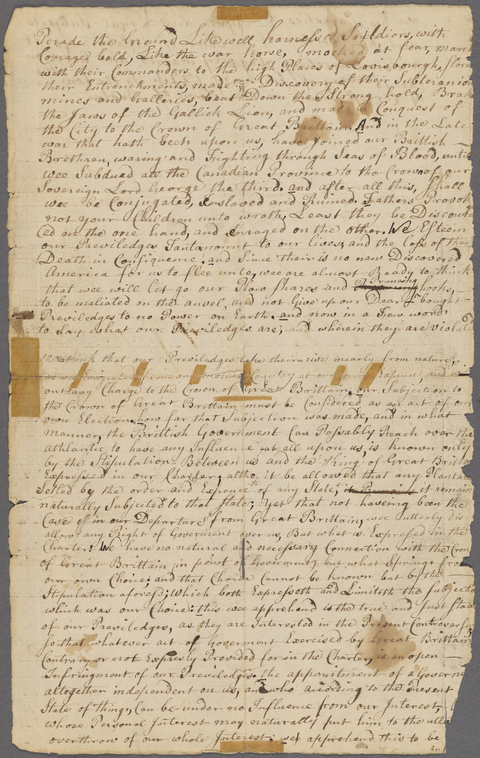 Perade the Ground Like well harnessed Soldiors, with
Corrage bold, Like the war horse, mocked at fear, march
with their Commanders to the high Places of Lovisbourgh,
their Entrenchments, made a Discovery of their Subteranion
mines and Galleries, beat Down the Strong hold, Brake
the Jaws of the Gallick Lion, and made a Conquest of
the City to the Crown of Great Brettain, And in the Late
war that hath been upon us, have Joined our Brittish
Brethren, waring and Frighting through Seas of Blood, untill
wee Subdued all the Canadian Province to the Crown of our
Sovereign Lord George the third, and after all this, Shall
wee be Conjugated, Enslaved and Ruined. Fathers Provoke
not your Children unto wrath, Least they be Discoura
ced on the one hand, and enraged on the other. We Esteem
our Previledges Tantamount to our Lives, and the Loss of them
Death in Consiquence, and Since their is no new Discovered
America for us to flee unto, wee are almost Ready to think
that wee will let go our Plow Shares and Pruning hooks,
to be maliated on the anvel, and not Give up our Dear bought
Previledges to no Power on Earth. and now in a few words
to Say what our Previledges are, and wherein they are violated
We think that our Previledges take their arive nearly from nature,
as we Emigrated from our mother Country at our own Expence, and
out any Charge to the Crown of Great Brittain, our Subjection to
the Crown of Great Brittain must be Considered as an act of our
own Election, how far that Subjection was made, and in what
manner the Brittish Government Can Possably Reach over the
athlantic to have any Influence at all upon us is known only
by the Stipulation Between us and the King of Great Brittain
Expressed in our Charter, altho it be allowed that any Plantation
Setled by the order and Expence of any State, it remains
naturally Subjected to that State; yet that not having been the
Case in our Departure from Great Brettain, wee utterly dis
allow any Right of Goverment over us, But what is Expressed in the
Charter. We have no natural and necessary Connection with the Crown
of Great Brittain in point of Goverment, but what Springs from
our own Choice; and that Choice Cannot be known but by the
Stipulation aforesd; Which both Expresseth and Limiteth the Subjection
which was our Choice; this wee apprehend is the true and Just State
of our Previledges, as they are Interested in the Present Controversy
So that whatever act of Goverment Exercised by Great Brittain
Contrary or not Expresly Provided for in the Charter, is an open
Infringment of our Previledges. the appointment of a Governor
altogether independent on us, and who acording to the Present
State of things, Can be under no Influence from our Interest,
whose Personal Interest may naturally put him to the utter
overthrow of our whole Interest; we apprehend this to be